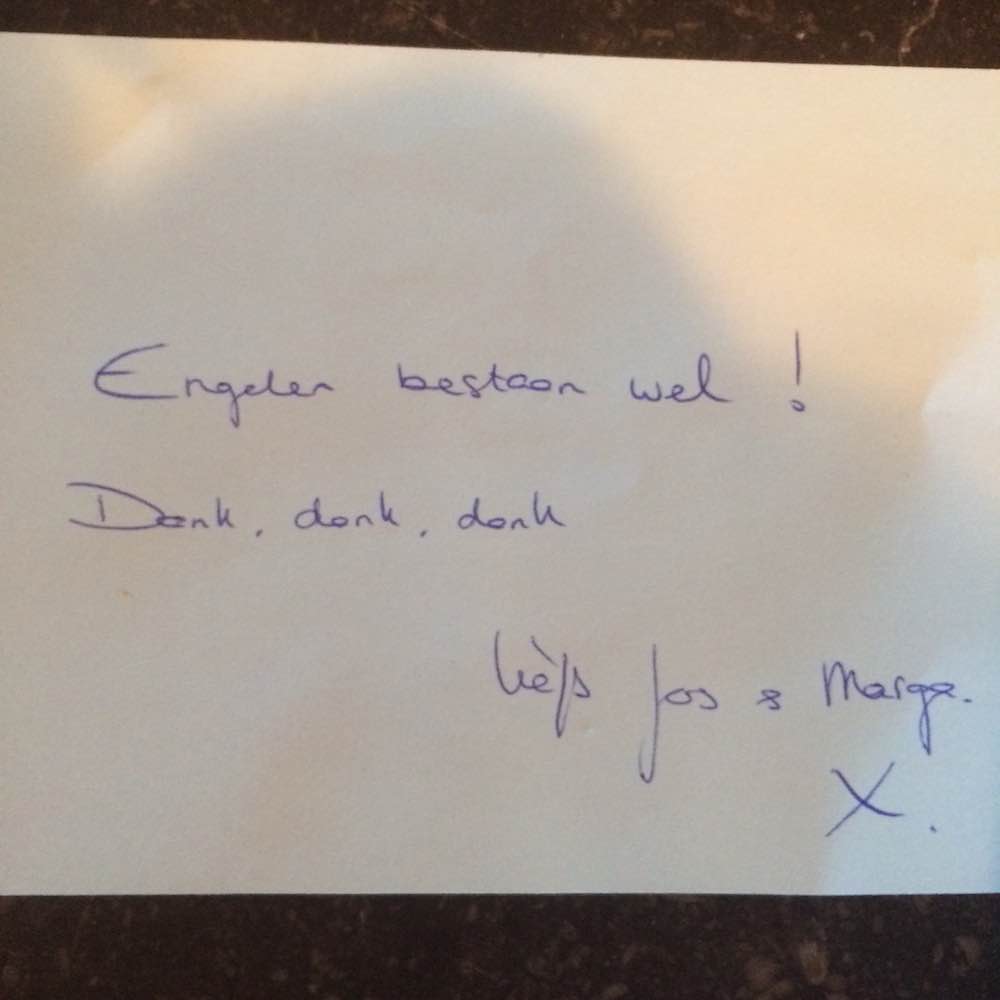 Engelen bestaan wel !
Dank, dank, dank
Lièfs Jos & Marga.
X.